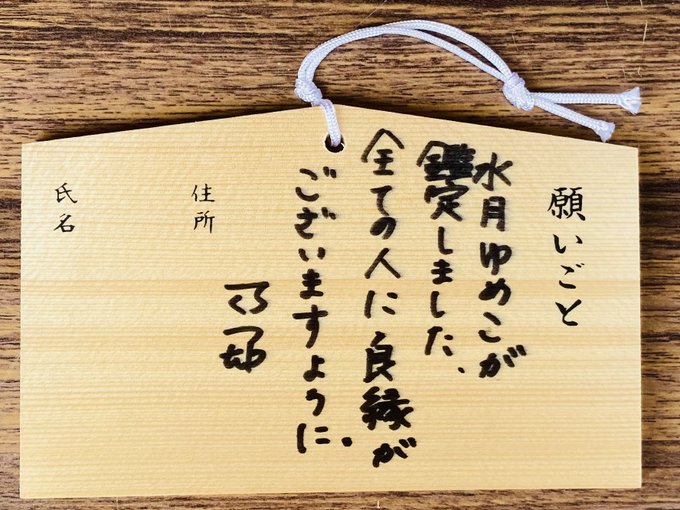 願いごと
水月ゆめこが
鑑定しました、
全ての人に良縁が
ございますように。
住所
氏名